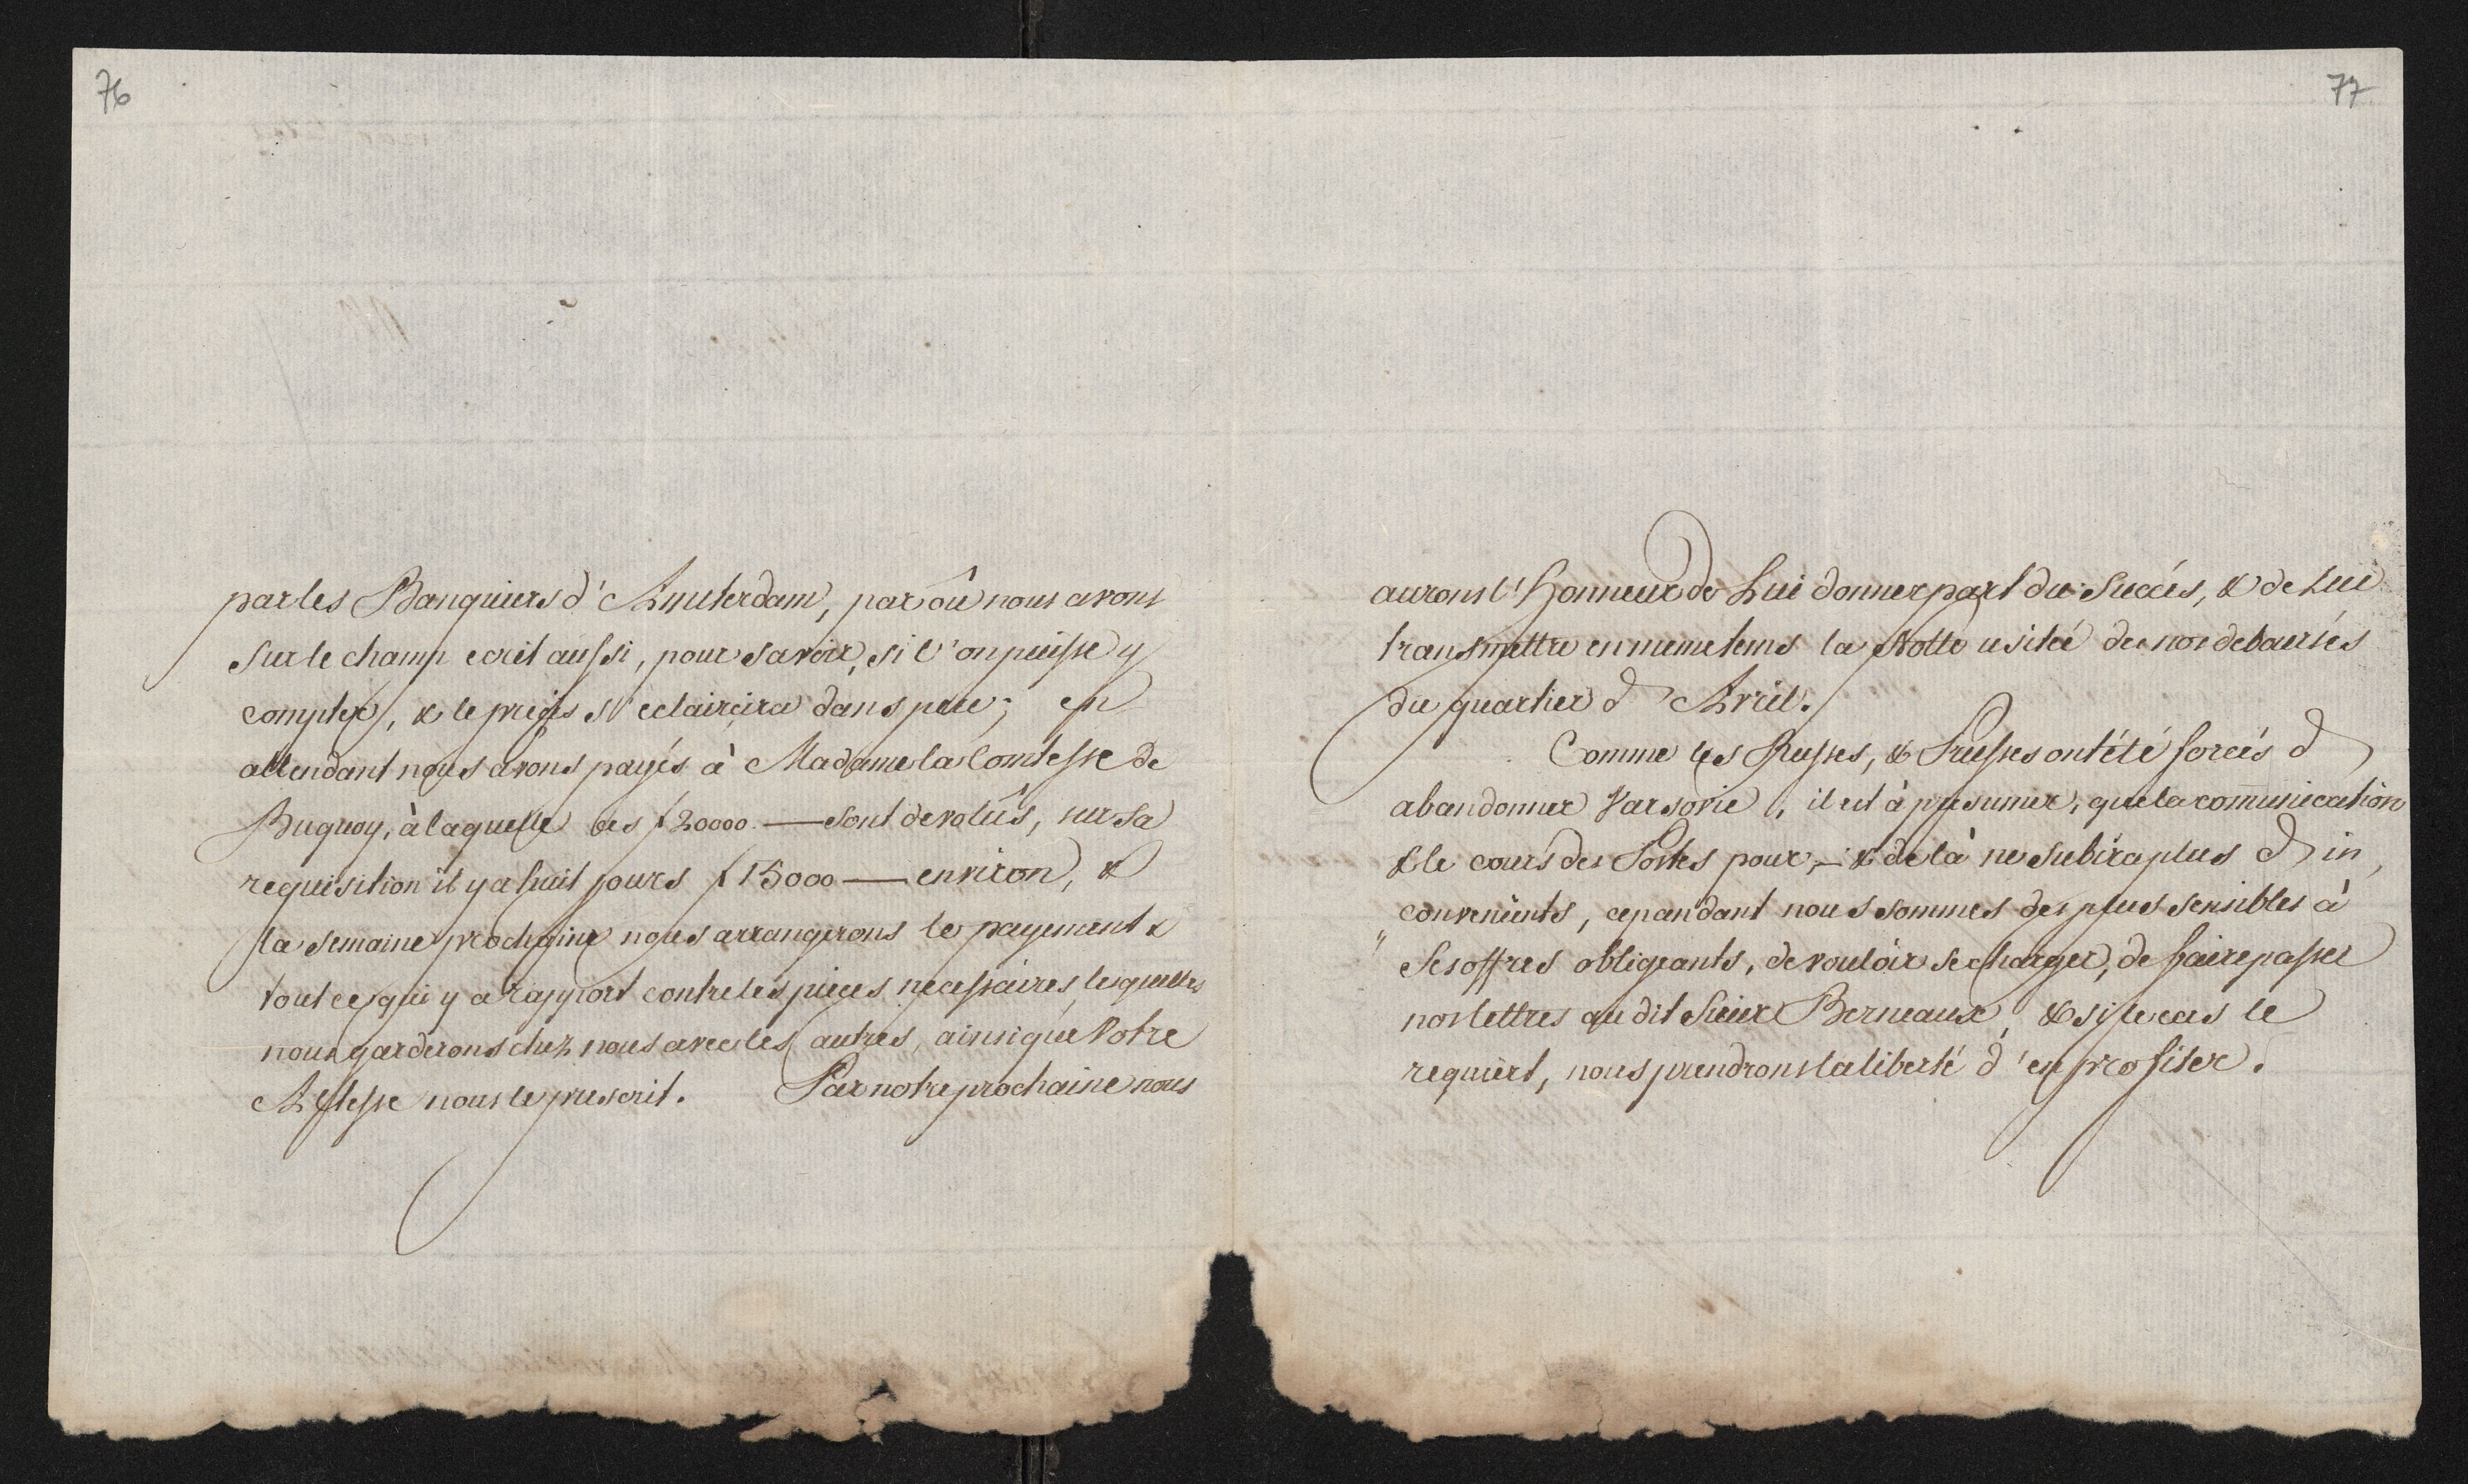 76
par les Banquiers d'Amsterdam, par où nous avons
sur le champ ecrit aussi, pour savoir, si l'on puisse y
compter, & le precis s'eclaircira dans peu; en
attendant nous avons payés à Madame la Comtesse de
Buquoy, à laquelle ces f 20000.— sont devolûs, sur sa
requisition il y a huit jours f 15000 — environ, &
la semaine prochaine nous arrangerons le payement &
tout ce qui y a rapport contre les pieces necessaires, lesquelles
nous garderons chez nous avec les autres, ainsi que Votre
Altesse nous le prescrit. Par notre prochaine nous
77
aurons l'Honneur de Lui donner part du Succés, & de Lui
transmettre en meme tems la Notte usitée de nos debourśes
du quartier d'Avril.
Comme les Russes, & Prusses ont été forcés d'
abandonner Varsovie, il est à presumer, que la com̄unication
& le cours des Postes pour, — & de là ne subira plus d'in,
„ convenients, cepandant nous sommes des plus sensibles à
Ses offres obligeants, de vouloir se charger, de faire passer
nos lettres au dit Sieur Berneaux, & si le cas le
requiert, nous prendrons la liberté d'en profiter.